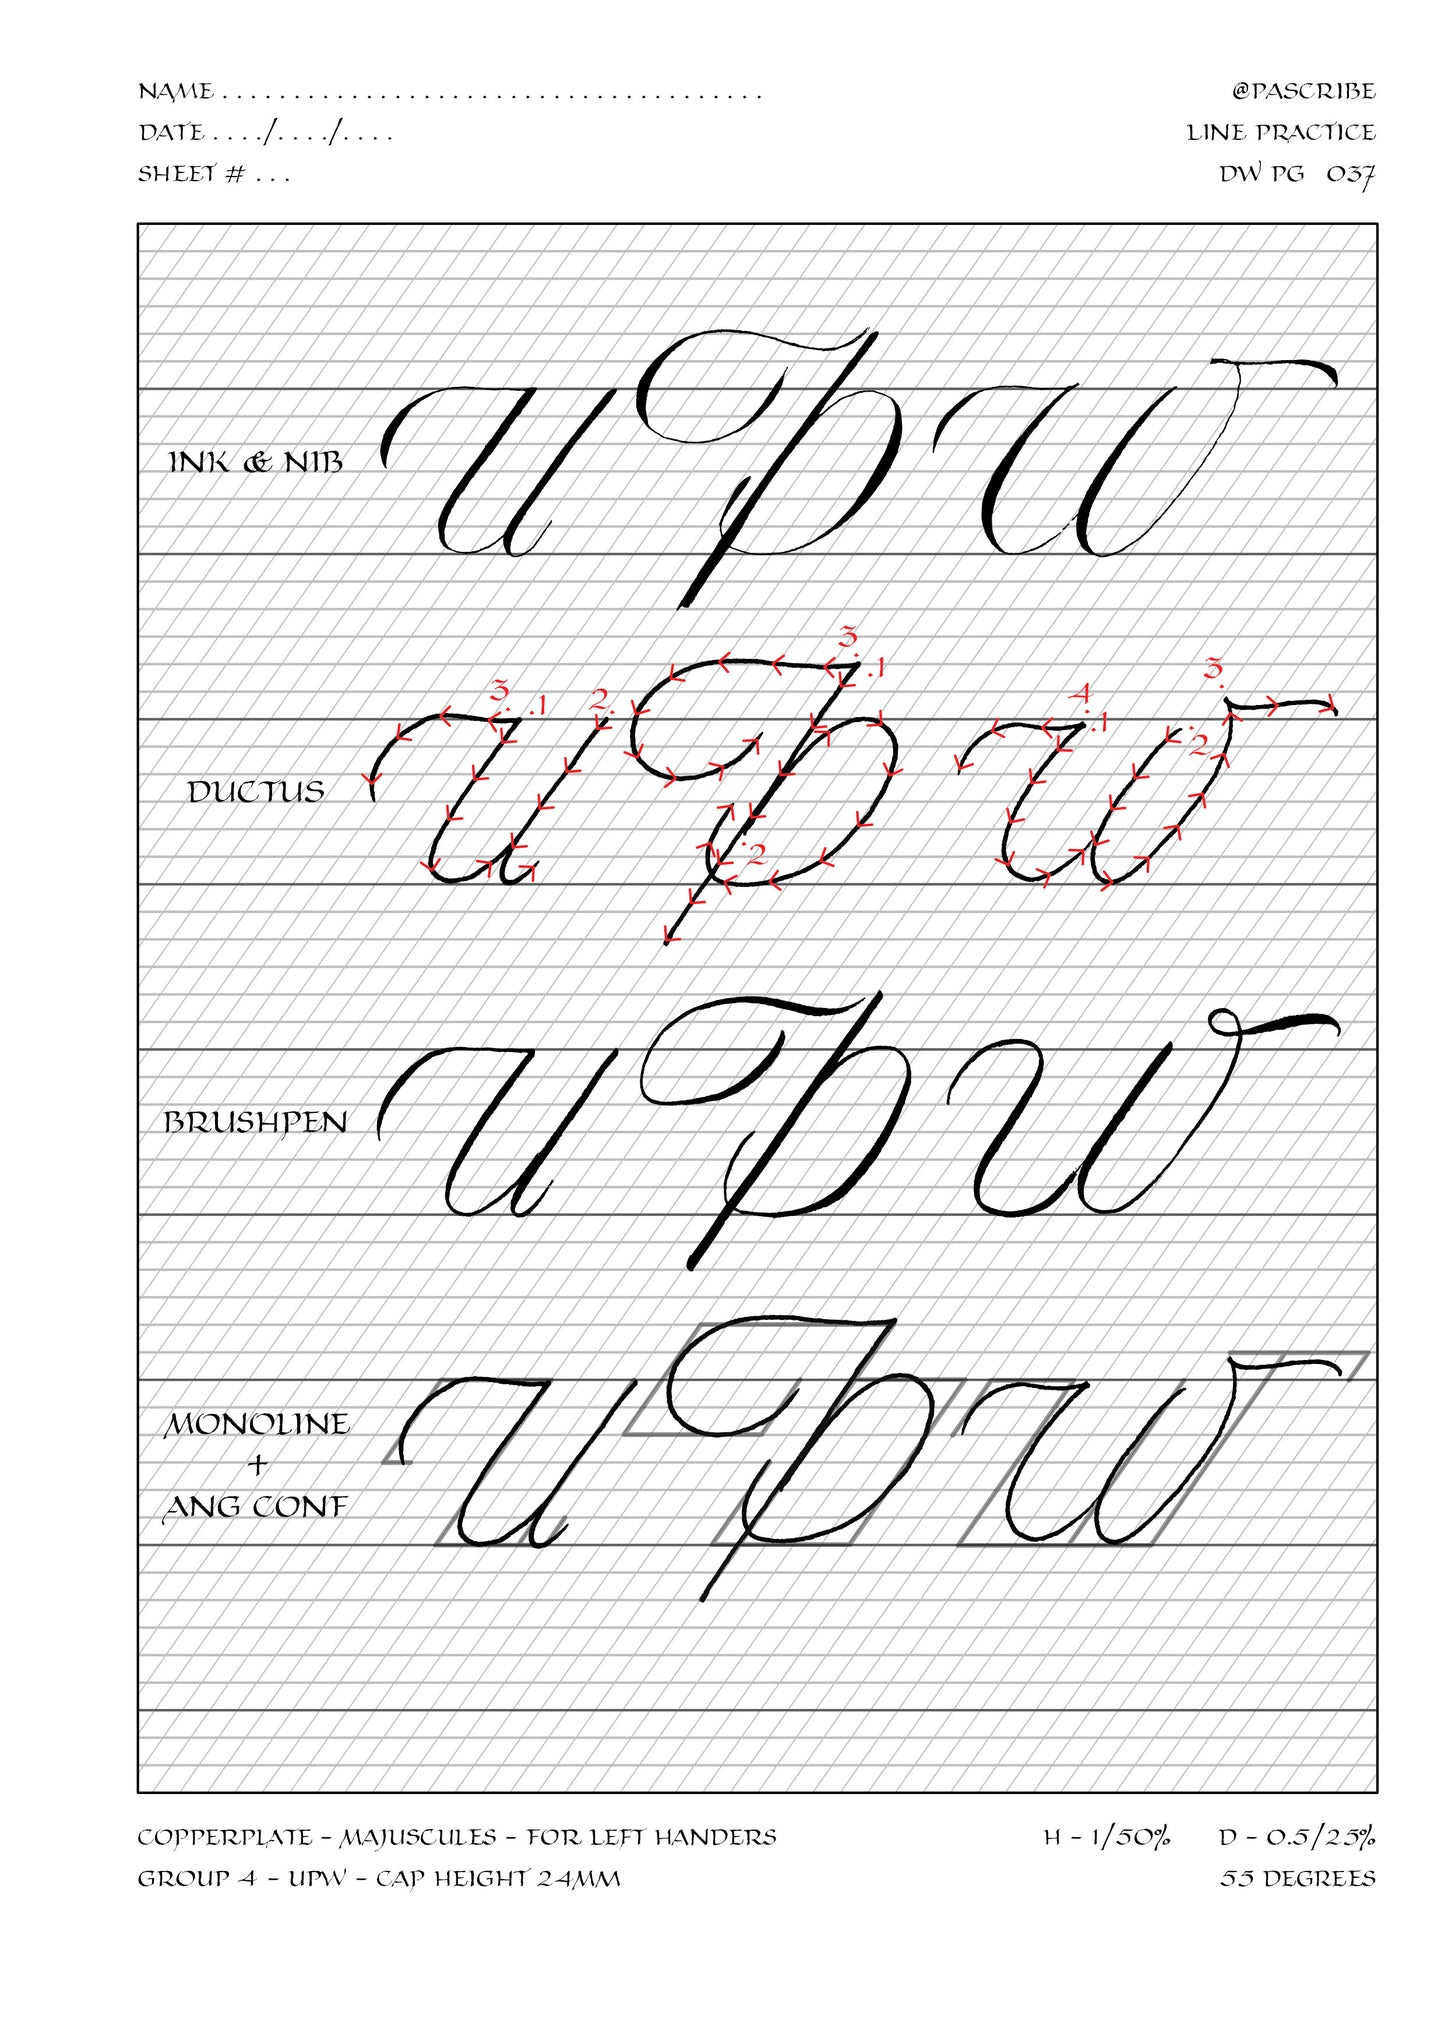 NAME . . . . . . . . . . . . . . . . . . . . . . . . . . . . . . . . . . . . . .
@PASCRIBE
DATE . . . ./. . . ./. . . .
LINE PRACTICE
SHEET # . . .
DW PG 037
INK & NIB U P W
3. .1 2. 3. .1 .2 4. .1 .2 3.
DUCTUS U P W
BRUSHPEN U P W
MONOLINE
+
ANG CONF
U P W
COPPERPLATE - MAJUSCULES - FOR LEFT HANDERS
H - 1/50% D - 0.5/25%
GROUP 4 - UPW - CAP HEIGHT 24MM
55 DEGREES